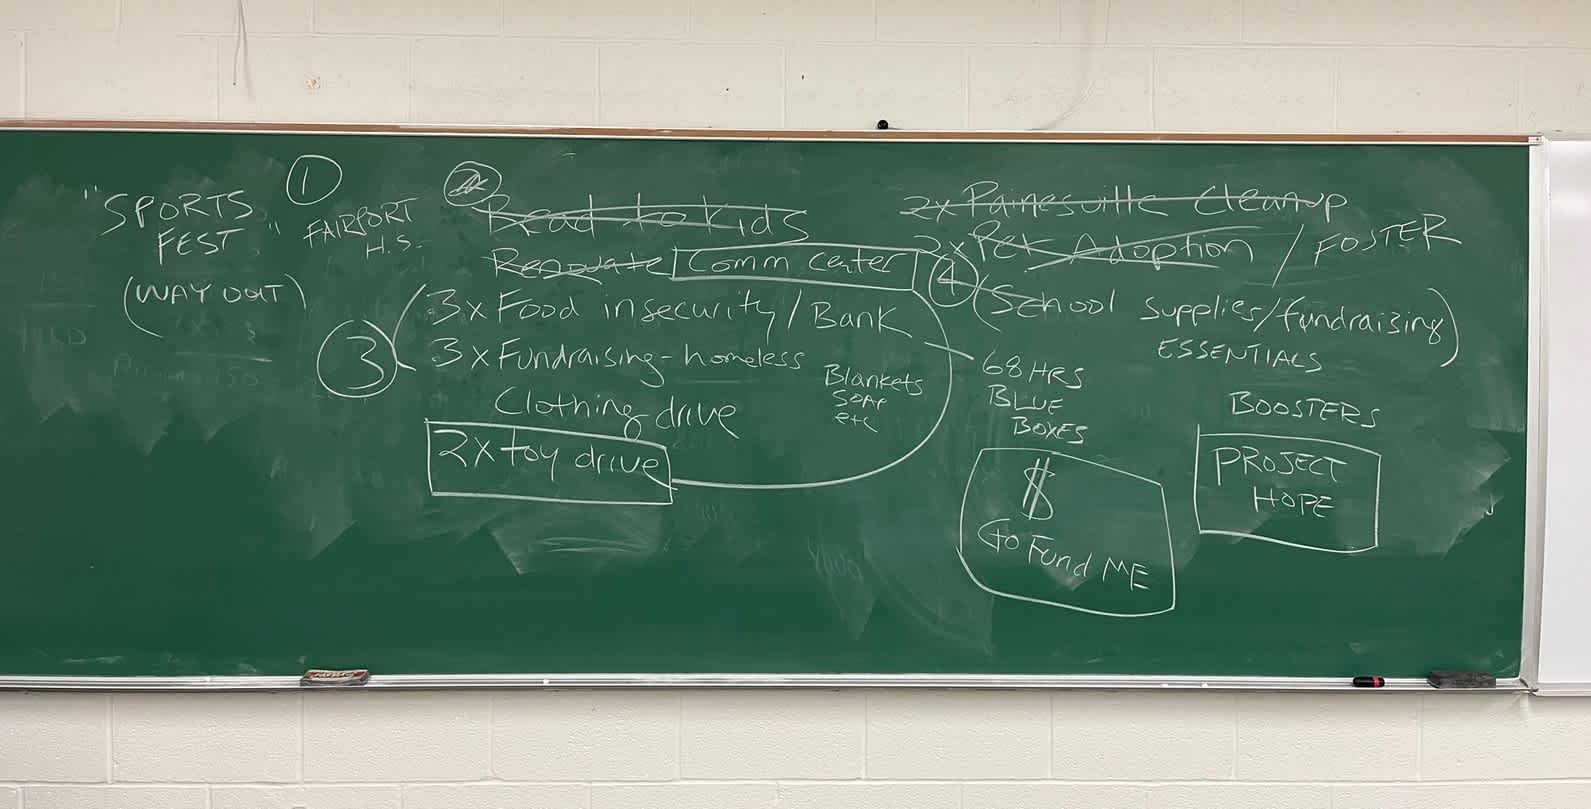 "SPORTS
FEST"
(WAY OUT)
1
FAIRPORT
H.S.
2x
Read to Kids
Renovate Comm center
3
3x Food insecurity/Bank
3x Fundraising-homeless
Clothing drive
2x toy drive
Blankets
SOAP
etc
2x Painesville Cleanup
2x Pet Adoption / FOSTER
4
(School Supplies/fundraising)
ESSENTIALS
68 HRS
BLUE
BOXES
$
Go Fund ME
BOOSTERS
PROJECT
HOPE